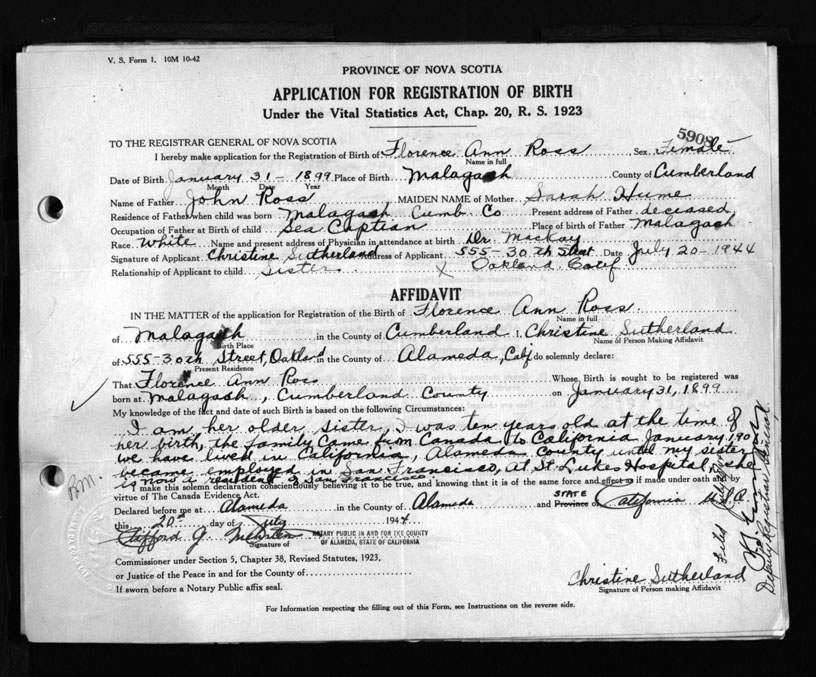 V. S. Form 1. 10M 10-42
PROVINCE OF NOVA SCOTIA
APPLICATION FOR REGISTRATION OF BIRTH
Under the Vital Statistics Act, Chap. 20, R. S. 1923
5909
TO THE REGISTRAR GENERAL OF NOVA SCOTIA
I hereby make application for the Registration of Birth of Florence Ann Ross, Sex Female
Name in full
Date of Birth January 31 - 1899 Place of Birth Malagash County of Cumberland
Month Date Year
Name of Father John Ross MAIDEN NAME of Mother Sarah Hume
Residence of Father when child was born Malagash Cumb. Co Present address of Father deceased
Occupation of Father at Birth of child Sea Captian Place of birth of Father Malagash
Race White Name and present address of Physician in attendance at birth Dr. McKay
Signature of Applicant Christine Sutherland Address of Applicant 555-30th Street Date July 20-1944
Relationship of Applicant to child Sister X Oakland Calif
AFFIDAVIT
IN THE MATTER of the application for Registration of the Birth of Florence Ann Ross
Name in full
of Malagash in the County of Cumberland, Christine Sutherland
Birth Place Name of Person Making Affidavit
of 555-30th Street, Oakland in the County of Alameda, Calif do solemnly declare:
Present Residence
That Florence Ann Ross Whose Birth is sought to be registered was
born at Malagash, Cumberland County on January 31, 1899
My knowledge of the fact and date of such Birth is based on the following Circumstances:
I am her older sister, I was ten years old at the time of
her birth, the family came from Canada to California January 190
we have lived in California, Alameda County until my sister
became employed in San Francisco, at St. Lukes Hospital, she
is now a resident of San Francisco
I make this solemn declaration conscientiously believing it to be true, and knowing that it is of the same force and effect as if made under oath and by
virtue of The Canada Evidence Act.
Declared before me at Alameda in the County of Alameda and Province of STATE California U.S.A.
this 20th day of July 1944
Clifford J. NOTARY PUBLIC IN AND FOR THE COUNTY
Signature of OF ALAMEDA, STATE OF CALIFORNIA
Commissioner under Section 5, Chapter 38, Revised Statutes, 1923,
or Justice of the Peace in and for the County of
If sworn before a Notary Public affix seal.
Christine Sutherland
Signature of Person making Affidavit
For Information respecting the filling out of this Form, see Instructions on the reverse side.
R.M.
Filed
Deputy Registrar General